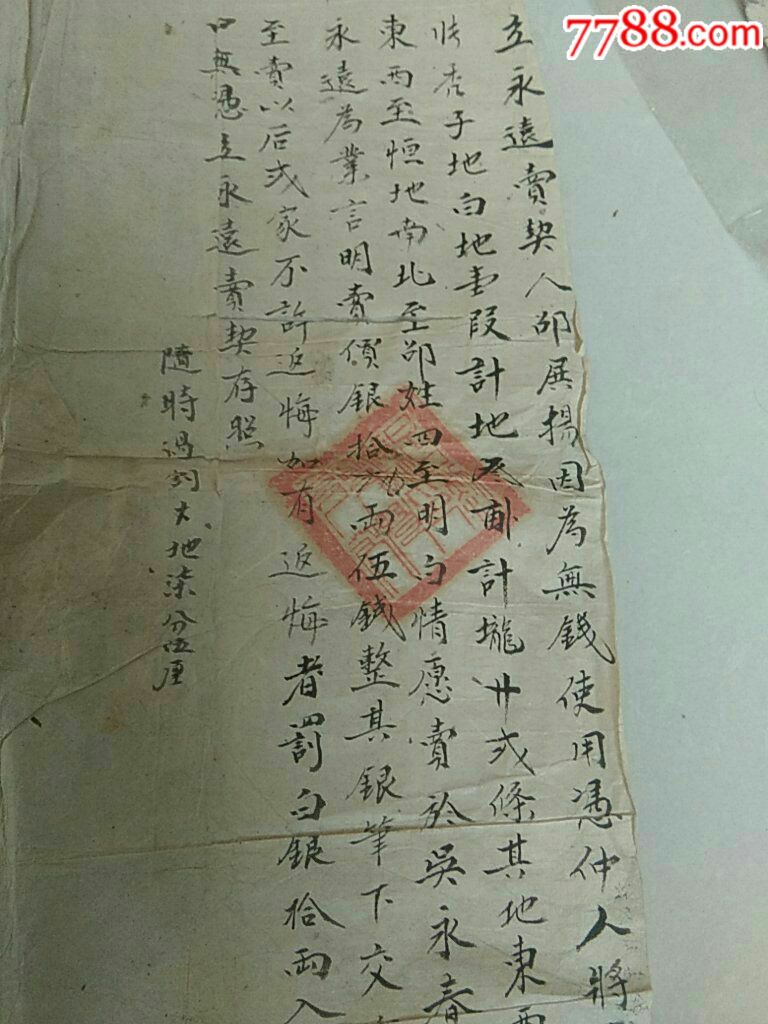 立永遠賣契人邵展揚因為無錢使用憑仲人將
禿子地白地壹段計地 計壠廿弍條其地東西
東西至恒地南北至邵姓四至明白情愿賣於吳永春
永遠為業言明賣價銀拾 兩伍錢整其銀筆下交
至賣以后弍家不許返悔如有返悔者罰白銀拾兩入
口無憑立永遠賣契存照
隨時過割大地柒分伍厘
7788.com